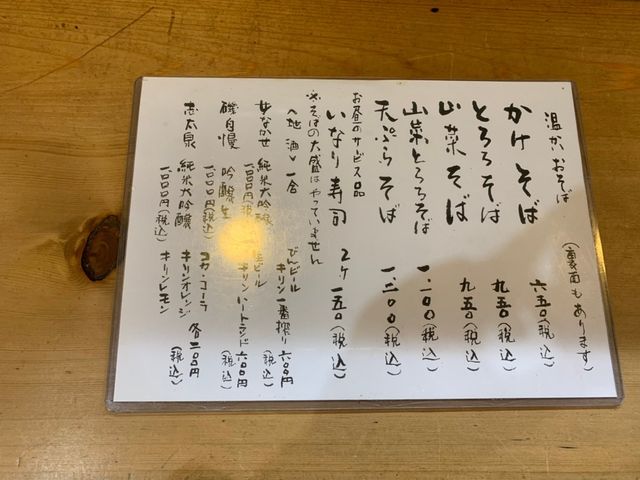 温かいおそば
(裏面もあります)
かけそば 六五〇(税込)
とろろそば 九五〇(税込)
山菜そば 九五〇(税込)
山菜とろろそば 一、一〇〇(税込)
天ぷらそば 一、三〇〇(税込)
お昼のサービス品
いなり寿司 2ケ 一五〇(税込)
※そばの大盛はやっていません
〈地酒〉一合
女なかせ 純米大吟醸
一〇〇〇円
磯自慢 吟醸
一〇〇〇円(税込)
志太泉 純米大吟醸
一〇〇〇円(税込)
びんビール
キリン一番搾り 六〇〇円
(税込)
ビール
キリンハートランド 六〇〇円
(税込)
コカ・コーラ
キリンオレンジ 各二〇〇円
キリンレモン (税込)